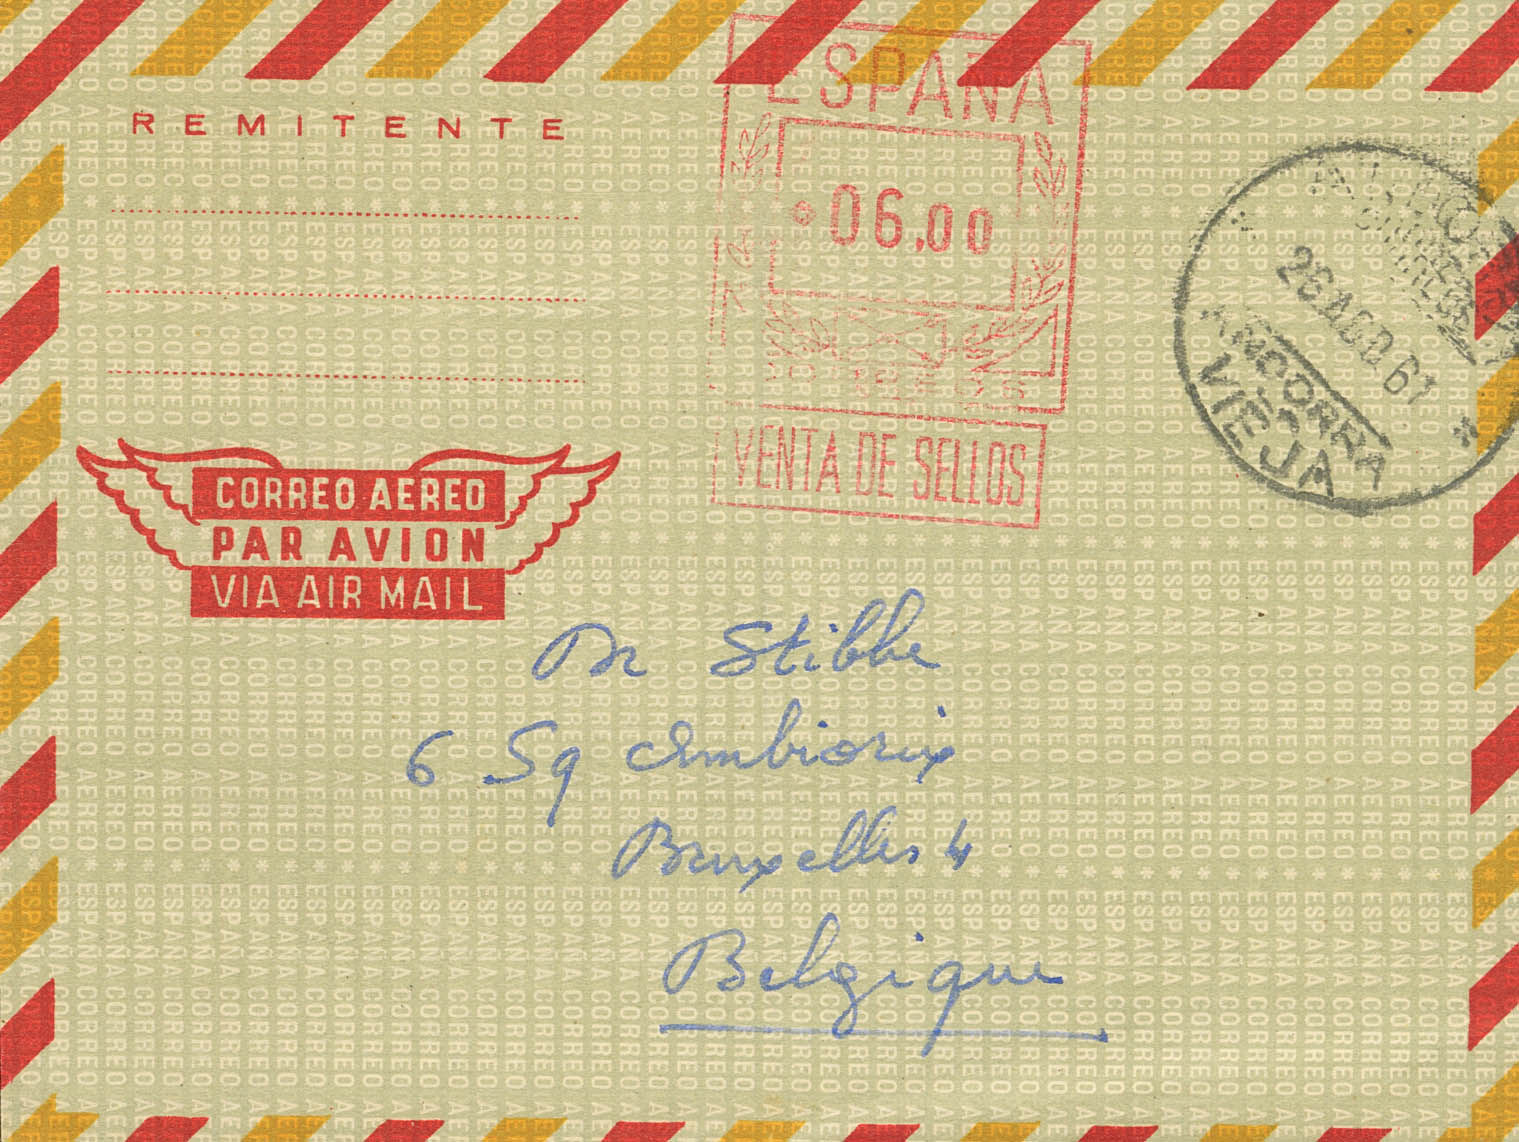 ESPAÑA
REMITENTE
06.00
CORREOS
VENTA DE SELLOS
26 AGO 61
ANDORRA
LA
VIEJA
CORREO AEREO
PAR AVION
VIA AIR MAIL
Mr Stibbe
6 Sq Ambiorix
Bruxelles 4
Belgique